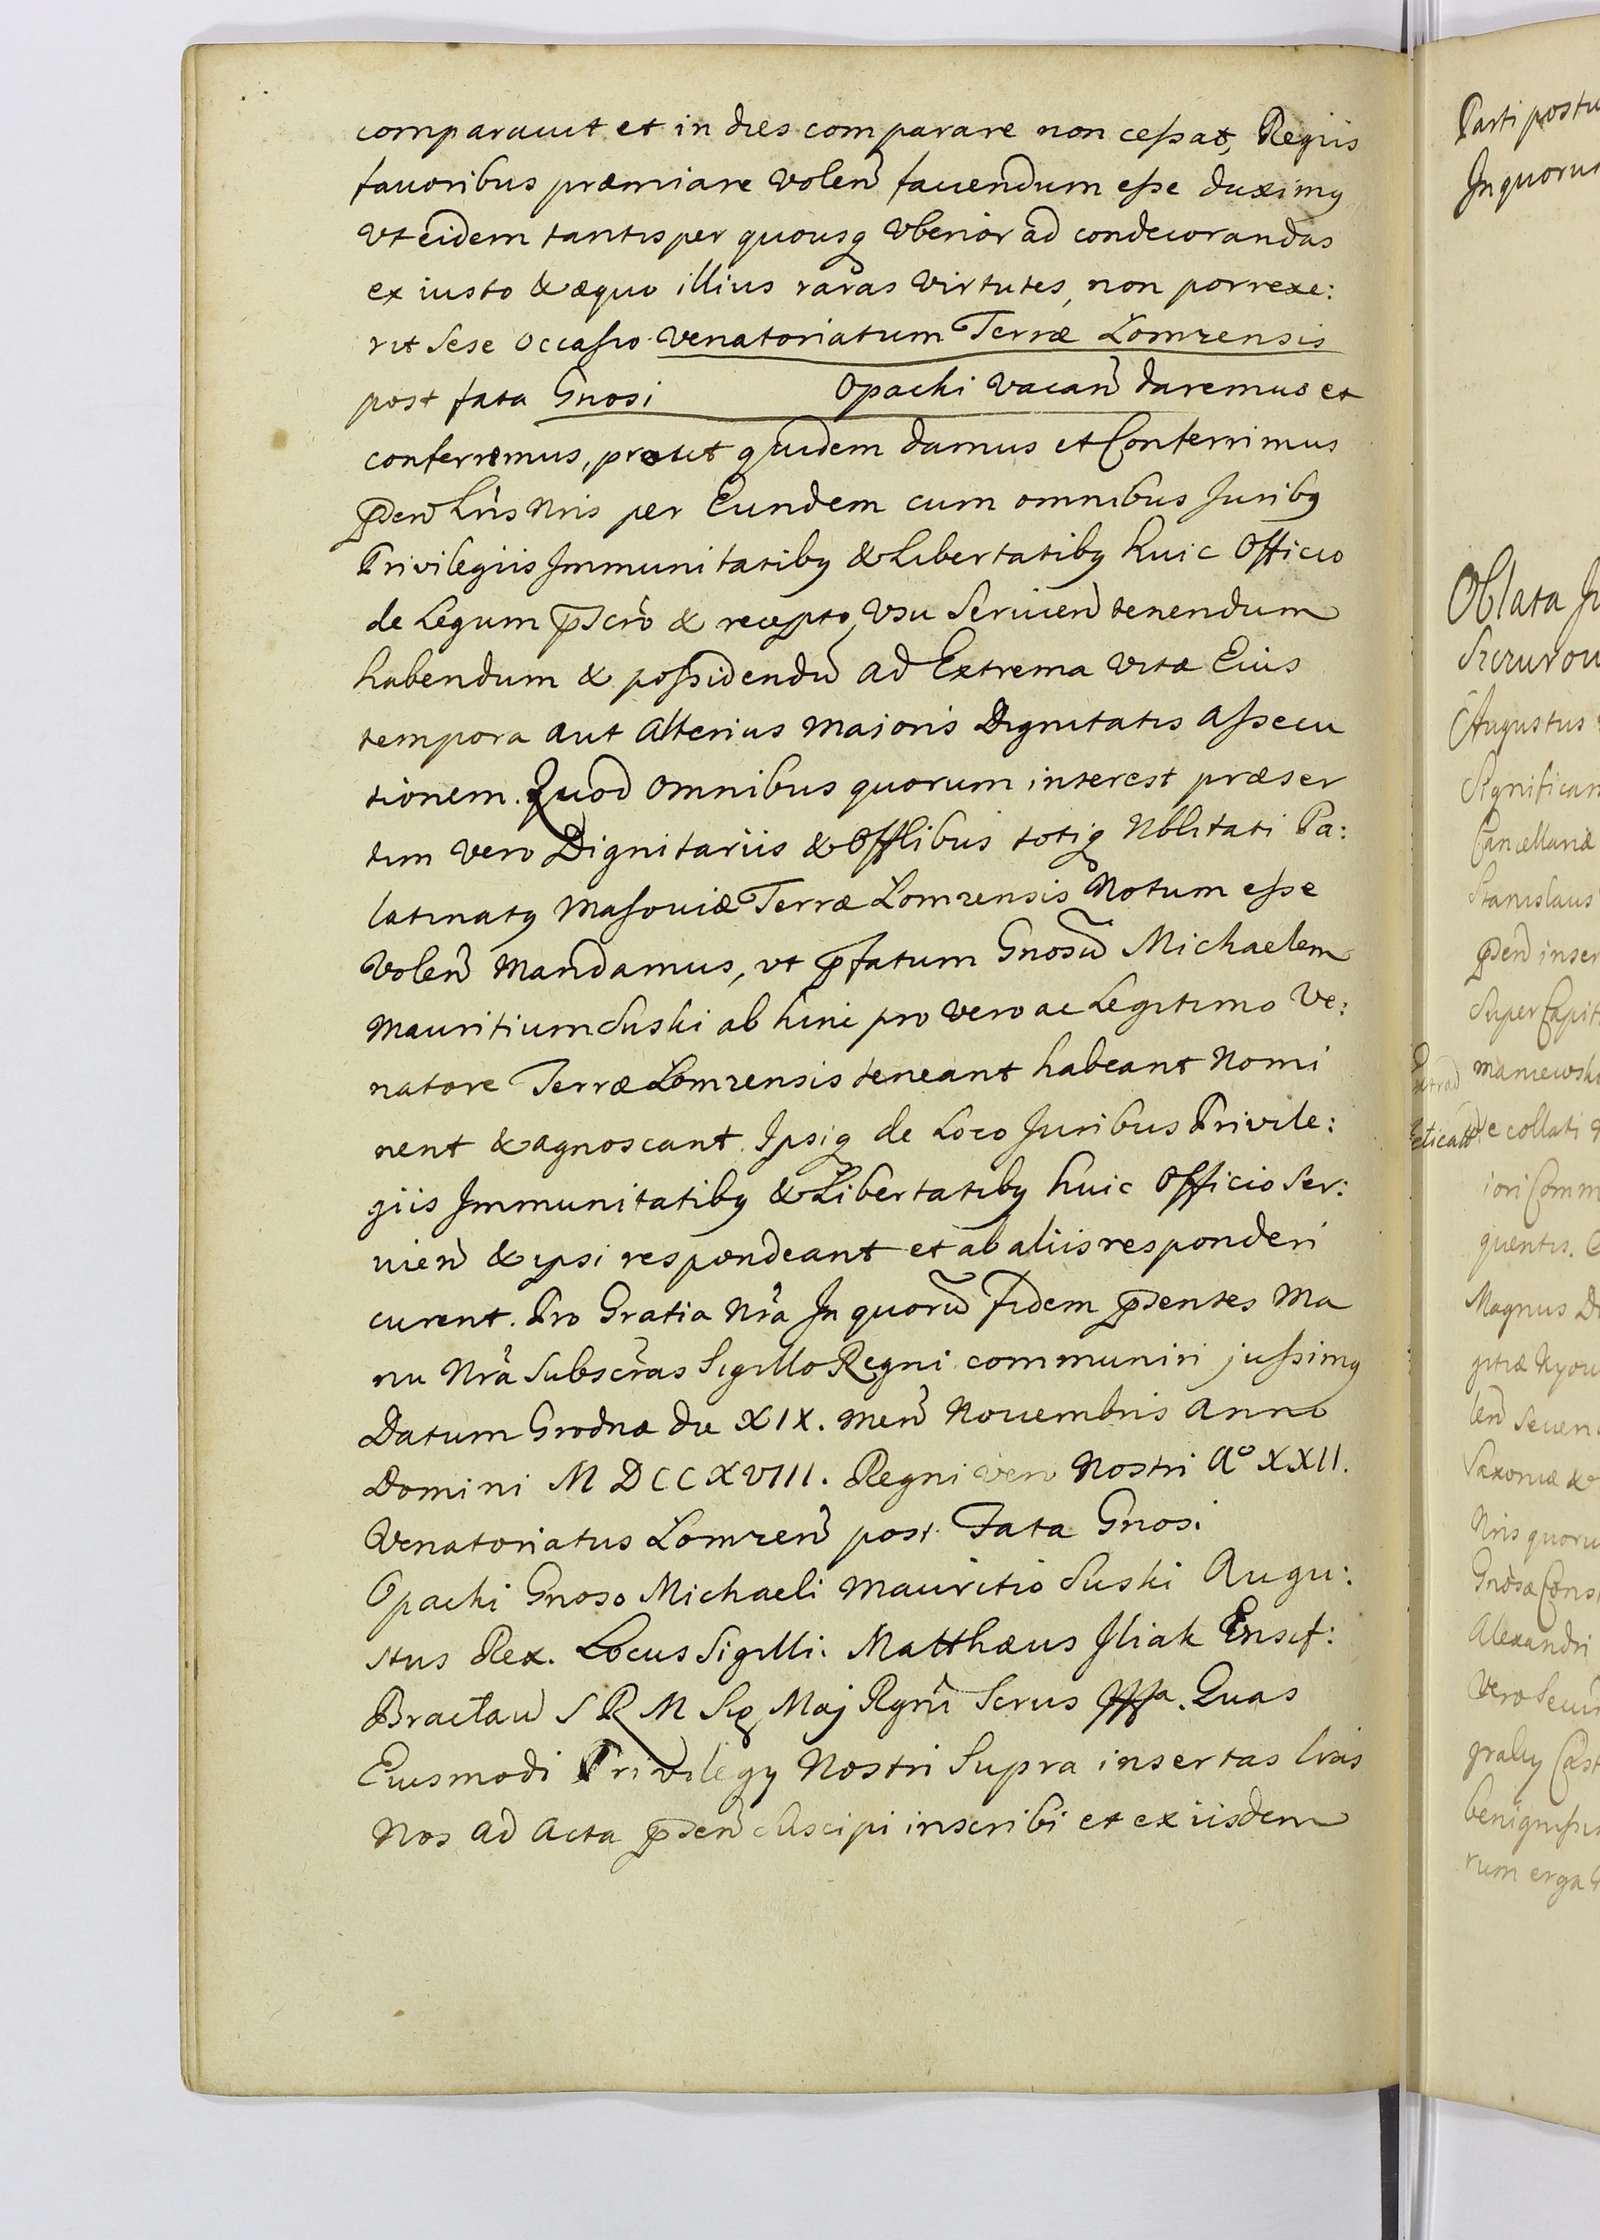 comparauit et in dies comparare non cessat, Regiis
fauoribus præmiare volen̄ fauendum esse duximꝰ
vt eidem tantisper quousqꝫ vberior ad condecorandas
ex iusto & æquo illius raras virtutes, non porrexe:
rit sese occasio venatoriatum Terræ Lomzensis
post fata Gnosi Opacki vacan̄ daremus et
conferremus, prout quidem damus et Conferimus
p̄sen̄ Lris Nris per Eundem cum omnibus Juribꝰ
Privilegiis Immunitatibꝰ & Libertatibꝰ huic Officio
de Legum p̄scr̄o & recepto, vsu seruien̄ tenendum
habendum & possidendū ad Extrema vitæ Eius
tempora aut alterius Majoris Dignitatis assecu
tionem. Quod omnibus quorum interest præser
tim vero Dignitariis & Offlibus totiqꝫ Nblitati Pa:
latinatꝰ Masoviæ Terræ Lomzensis Notum esse
volen̄ Mandamus, vt p̄fatum Gnosū Michaelem
Mauritium Suski ab hinc pro vero ac Legitimo Ve:
natore Terræ Lomzensis teneant habeant Nomi
nent & agnoscant Ipsiqꝫ de Loco Juribus Privile:
giis Immunitatibꝰ & Libertatibꝰ huic Officio ser:
uien̄ & ipsi respondeant et ab aliis responderi
curent. Pro Gratia Nrā In quorū fidem p̄sentes Ma
nu Nrā Subscr̄as Sigillo Regni communiri jussimꝰ
Datum Grodnæ die XIX. Men̄ Nouembris Anno
Domini MDCCXVIII. Regni vero Nostri Aº XXII.
Venatoriatus Lomzen̄ post Fata Gnosi
Opacki Gnoso Michaeli Mauritio Suski Augu:
stus Rex. Locus Sigilli. Matthæus Iliak Ensif:
Braclau S R M Sig Maj Regni Scrus Quas
Eiusmodi Privilegy Nostri Supra insertas Lras
Nos ad Acta p̄sen̄ suscipi inscribi et ex iisdem
Parti postu
In quorum
Oblata
Augustus
Significam
Cancellariæ
Stanislaus
p̄sen̄ inser
Super Capit
maniewski
e collati
iori Comm
quentis.
Magnus
len̄
Saxoniæ &
Nris quoru
Gnosæ Const
Alexandri
Vero
Cast
benigniss
rum erga